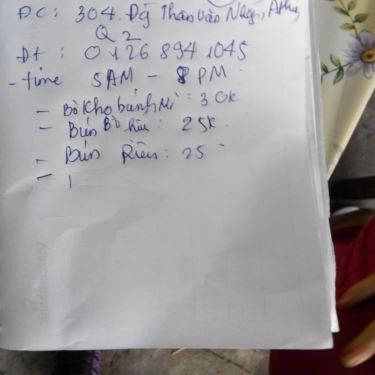 ĐC: 304. Đg Thân Văn Nhiếp, APhú,
Q2
Đt: 0126 894 1045
- time 5AM - 8PM.
- Bò Kho bánh Mì: 30k
- Bún Bò Huế: 25k
- Bún Riêu: 25 "
-